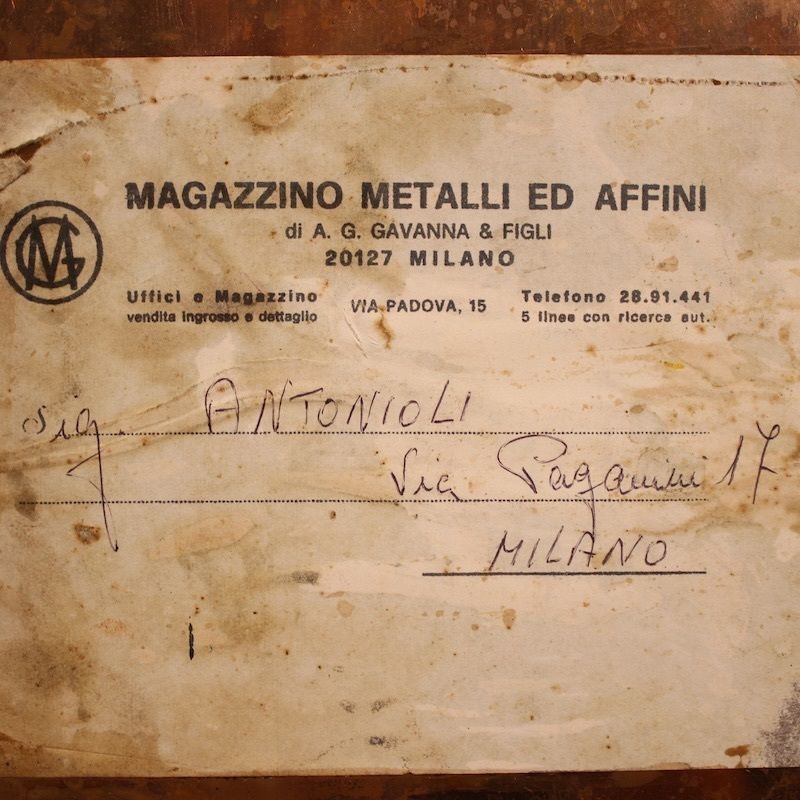 MAGAZZINO METALLI ED AFFINI
di A. G. GAVANNA & FIGLI
20127 MILANO
MG
Uffici e Magazzino VIA PADOVA, 15 Telefono 28.91.441
vendita ingrosso e dettaglio 5 linee con ricerca aut.
Sig. ANTONIOLI
Via Paganini 17
MILANO